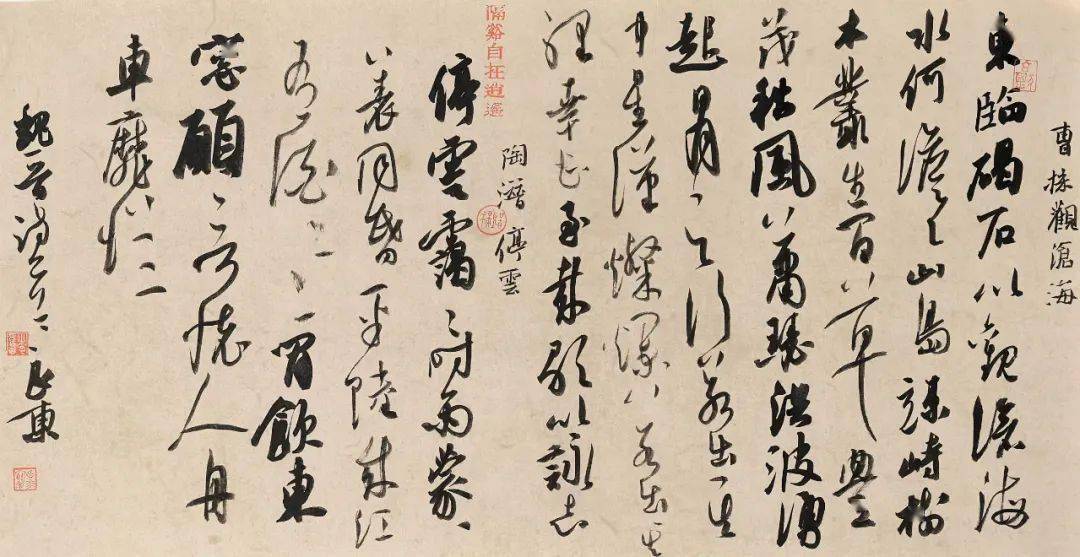 曹操觀滄海
東臨碣石以觀滄海
水何澹々山島竦峙樹
木叢生百草豐
茂秋風蕭瑟洪波湧
起日月之行若出其
中星漢燦爛若出其
裡幸甚至哉歌以詠志
隔谿自在逍遙
陶潛停雲
停雲靄々時雨蒙々
八表同昏平陸成江
有酒々々閒飲東
窗願言懷人舟
車靡從
魏晉詩二